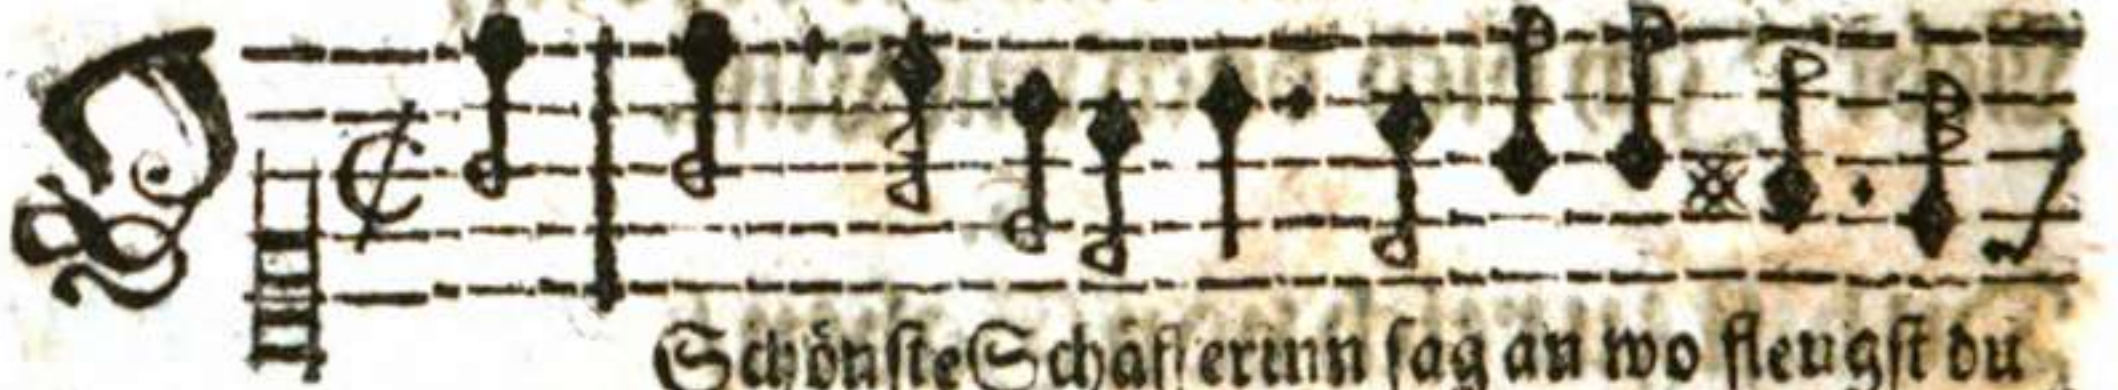 O
Schönste Schäfferinn sag an wo fleugst du